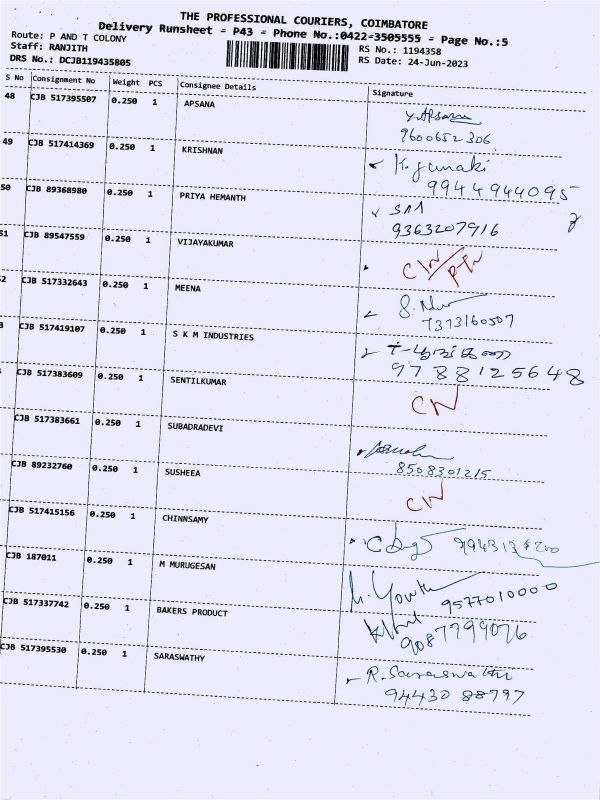 THE PROFESSIONAL COURIERS, COIMBATORE
Delivery Runsheet - P43 - Phone No.:0422-3505555 - Page No.:5
Route: P AND T COLONY
Staff: RANJITH
DRS No.: DCJB119435805
RS No.: 1194358
RS Date: 24-Jun-2023
S No Consignment No Weight PCS Consignee Details Signature
48 CJB 517395507 0.250 1 APSANA Y. Apsana
9600652306
49 CJB 517414369 0.250 1 KRISHNAN K. Janaki
9944944095
50 CJB 89368980 0.250 1 PRIYA HEMANTH
9363207916
51 CJB 89547559 0.250 1 VIJAYAKUMAR CN/
2 CJB 517332643 0.250 1 MEENA
7373160507
3 CJB 517419107 0.250 1 S K M INDUSTRIES
9788125648
CJB 517383609 0.250 1 SENTILKUMAR CN
CJB 517383661 0.250 1 SUBADRADEVI
8508301215
CJB 89232760 0.250 1 SUSHEEA CN
CJB 517415156 0.250 1 CHINNSAMY
CJB 187011 0.250 1 M MURUGESAN
9577010000
CJB 517337742 0.250 1 BAKERS PRODUCT
9087799076
CJB 517395530 0.250 1 SARASWATHY R. Saraswathi
94430 88797